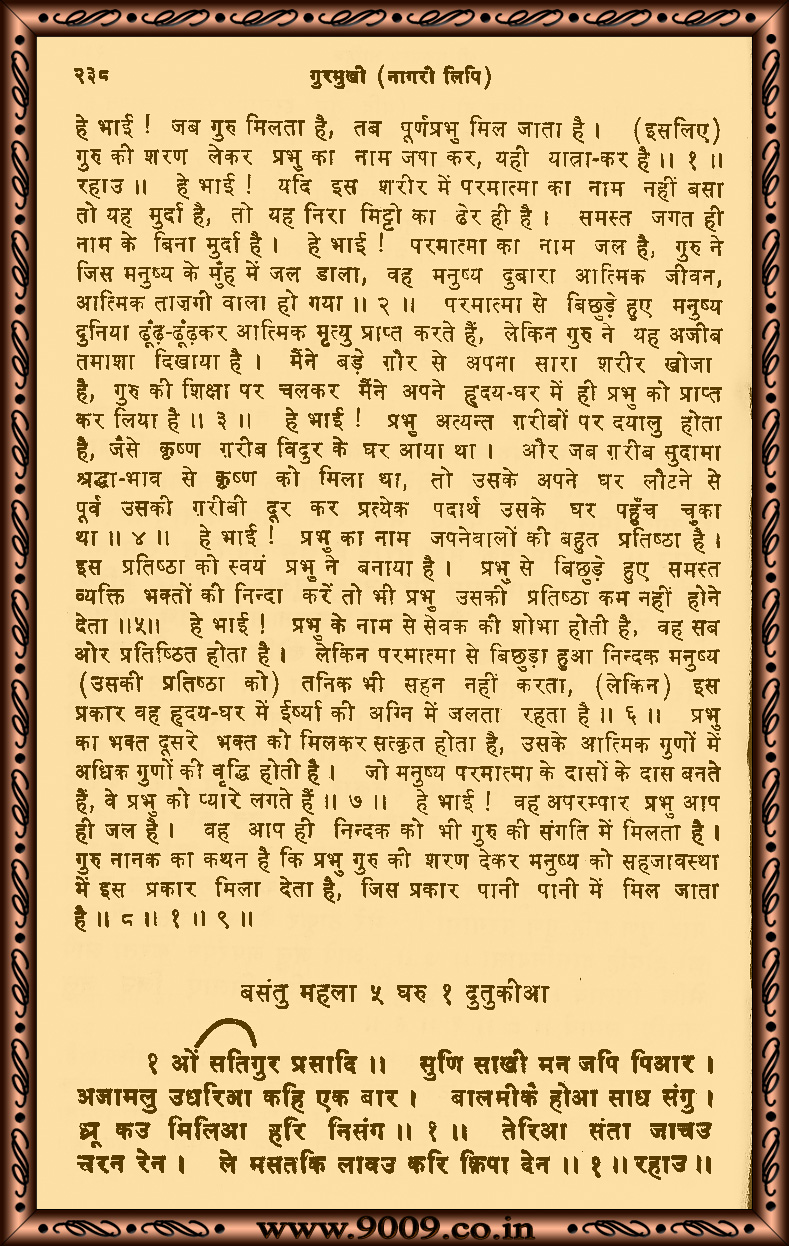 २३८ गुरमुखी (नागरी लिपि)
हे भाई ! जब गुरु मिलता है, तब पूर्णप्रभु मिल जाता है। (इसलिए)
गुरु की शरण लेकर प्रभु का नाम जपा कर, यही यात्रा-कर है॥ १ ॥
रहाउ॥ हे भाई ! यदि इस शरीर में परमात्मा का नाम नहीं बसा
तो यह मुर्दा है, तो यह निरा मिट्टी का ढेर ही है। समस्त जगत ही
नाम के बिना मुर्दा है। हे भाई ! परमात्मा का नाम जल है, गुरु ने
जिस मनुष्य के मुँह में जल डाला, वह मनुष्य दुबारा आत्मिक जीवन,
आत्मिक ताज़गी वाला हो गया॥ २ ॥ परमात्मा से बिछुड़े हुए मनुष्य
दुनिया ढूंढ़-ढूंढ़कर आत्मिक मृत्यु प्राप्त करते हैं, लेकिन गुरु ने यह अजीब
तमाशा दिखाया है। मैंने बड़े ग़ौर से अपना सारा शरीर खोजा
है, गुरु की शिक्षा पर चलकर मैंने अपने हृदय-घर में ही प्रभु को प्राप्त
कर लिया है॥ ३ ॥ हे भाई ! प्रभु अत्यन्त ग़रीबों पर दयालु होता
है, जैसे कृष्ण ग़रीब विदुर के घर आया था। और जब ग़रीब सुदामा
श्रद्धा-भाव से कृष्ण को मिला था, तो उसके अपने घर लौटने से
पूर्व उसकी ग़रीबी दूर कर प्रत्येक पदार्थ उसके घर पहुँच चुका
था॥ ४ ॥ हे भाई ! प्रभु का नाम जपनेवालों की बहुत प्रतिष्ठा है।
इस प्रतिष्ठा को स्वयं प्रभु ने बनाया है। प्रभु से बिछुड़े हुए समस्त
व्यक्ति भक्तों की निन्दा करें तो भी प्रभु उसकी प्रतिष्ठा कम नहीं होने
देता ॥५॥ हे भाई ! प्रभु के नाम से सेवक की शोभा होती है, वह सब
ओर प्रतिष्ठित होता है। लेकिन परमात्मा से बिछुड़ा हुआ निन्दक मनुष्य
(उसकी प्रतिष्ठा को) तनिक भी सहन नहीं करता, (लेकिन) इस
प्रकार वह हृदय-घर में ईर्ष्या की अग्नि में जलता रहता है॥ ६ ॥ प्रभु
का भक्त दूसरे भक्त को मिलकर सत्कृत होता है, उसके आत्मिक गुणों में
अधिक गुणों की वृद्धि होती है। जो मनुष्य परमात्मा के दासों के दास बनते
हैं, वे प्रभु को प्यारे लगते हैं॥ ७ ॥ हे भाई ! वह अपरम्पार प्रभु आप
ही जल है। वह आप ही निन्दक को भी गुरु की संगति में मिलता है।
गुरु नानक का कथन है कि प्रभु गुरु की शरण देकर मनुष्य को सहजावस्था
में इस प्रकार मिला देता है, जिस प्रकार पानी पानी में मिल जाता
है॥ ८ ॥ १ ॥ ९ ॥
बसंतु महला ५ घरु १ दुतुकीआ
१ ओं सतिगुर प्रसादि॥ सुणि साखी मन जपि पिआर।
अजामलु उधरिआ कहि एक बार। बालमीकै होआ साध संगु।
ध्रू कउ मिलिआ हरि निसंग॥ १ ॥ तेरिआ संता जाचउ
चरन रेन। ले मसतकि लावउ करि क्रिपा देन॥ १ ॥ रहाउ॥
www.9009.co.in